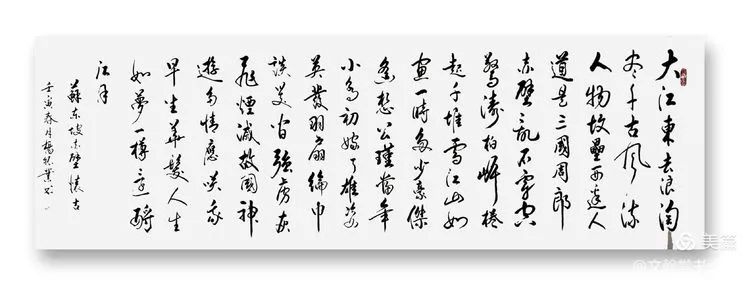 大江東去浪淘
尽千古風流
人物故壘西邊人
道是三國周郎
赤壁亂石穿空
驚濤拍岸捲
起千堆雪江山如
畫一時多少豪傑
遙想公瑾當年
小喬初嫁了雄姿
英發羽扇綸巾
談笑间強虜灰
飛煙滅故國神
遊多情應笑我
早生華髮人生
如夢一樽還酹
江月
蘇东坡赤壁懷古
壬寅春月楊業书
美篇